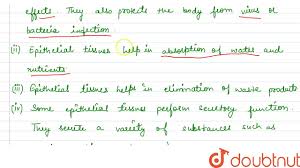 effects. They also protects the body from virus or
bacteria infection.
(ii) Epithelial tissues help in absorption of water and
nutrients
(iii) Epithelial tissues helps in elimination of waste products
(iv) Some epithelial tissues perform secretory function.
They secrete a variety of substances such as
doubtnut